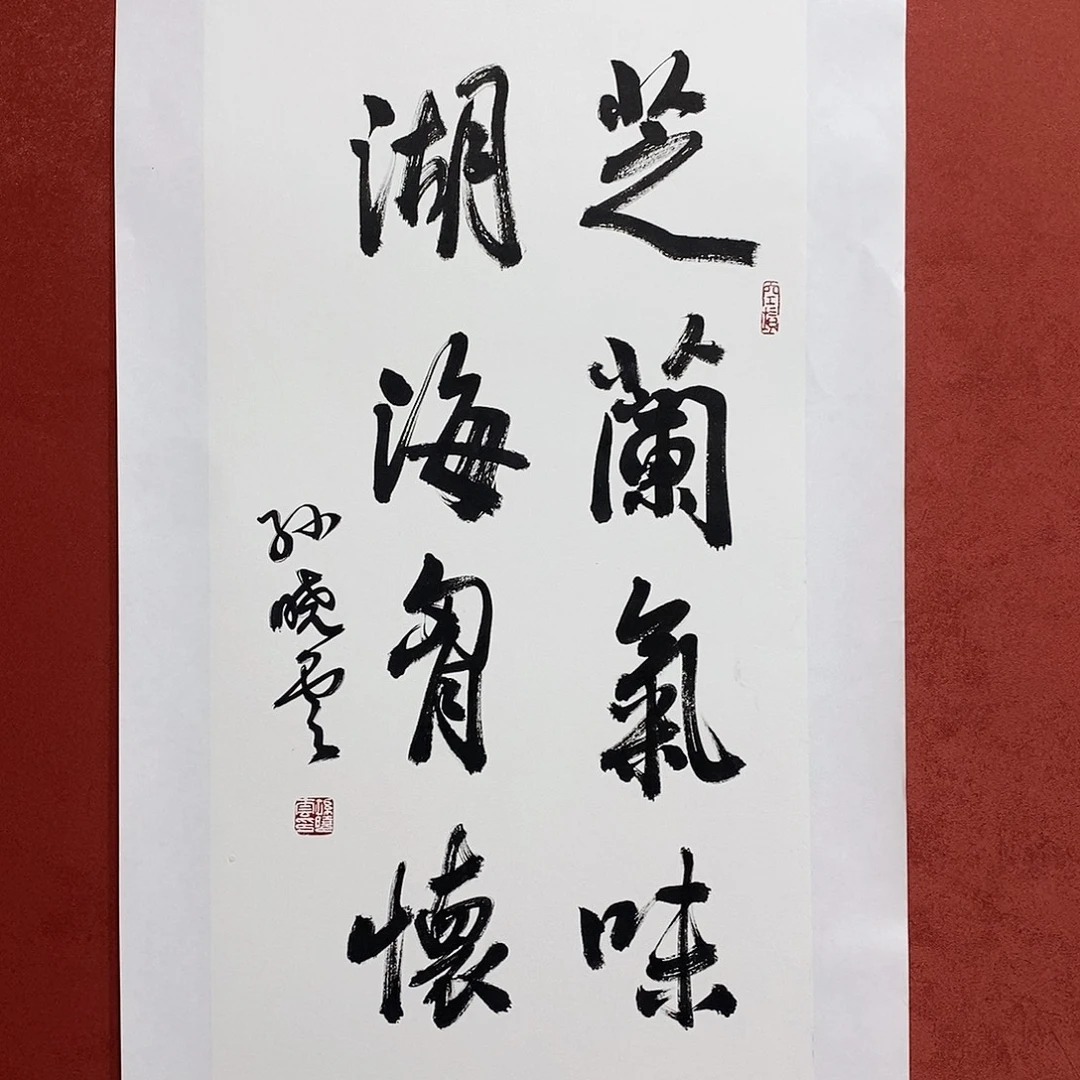 芝蘭氣味
湖海胷懷
孙晓云